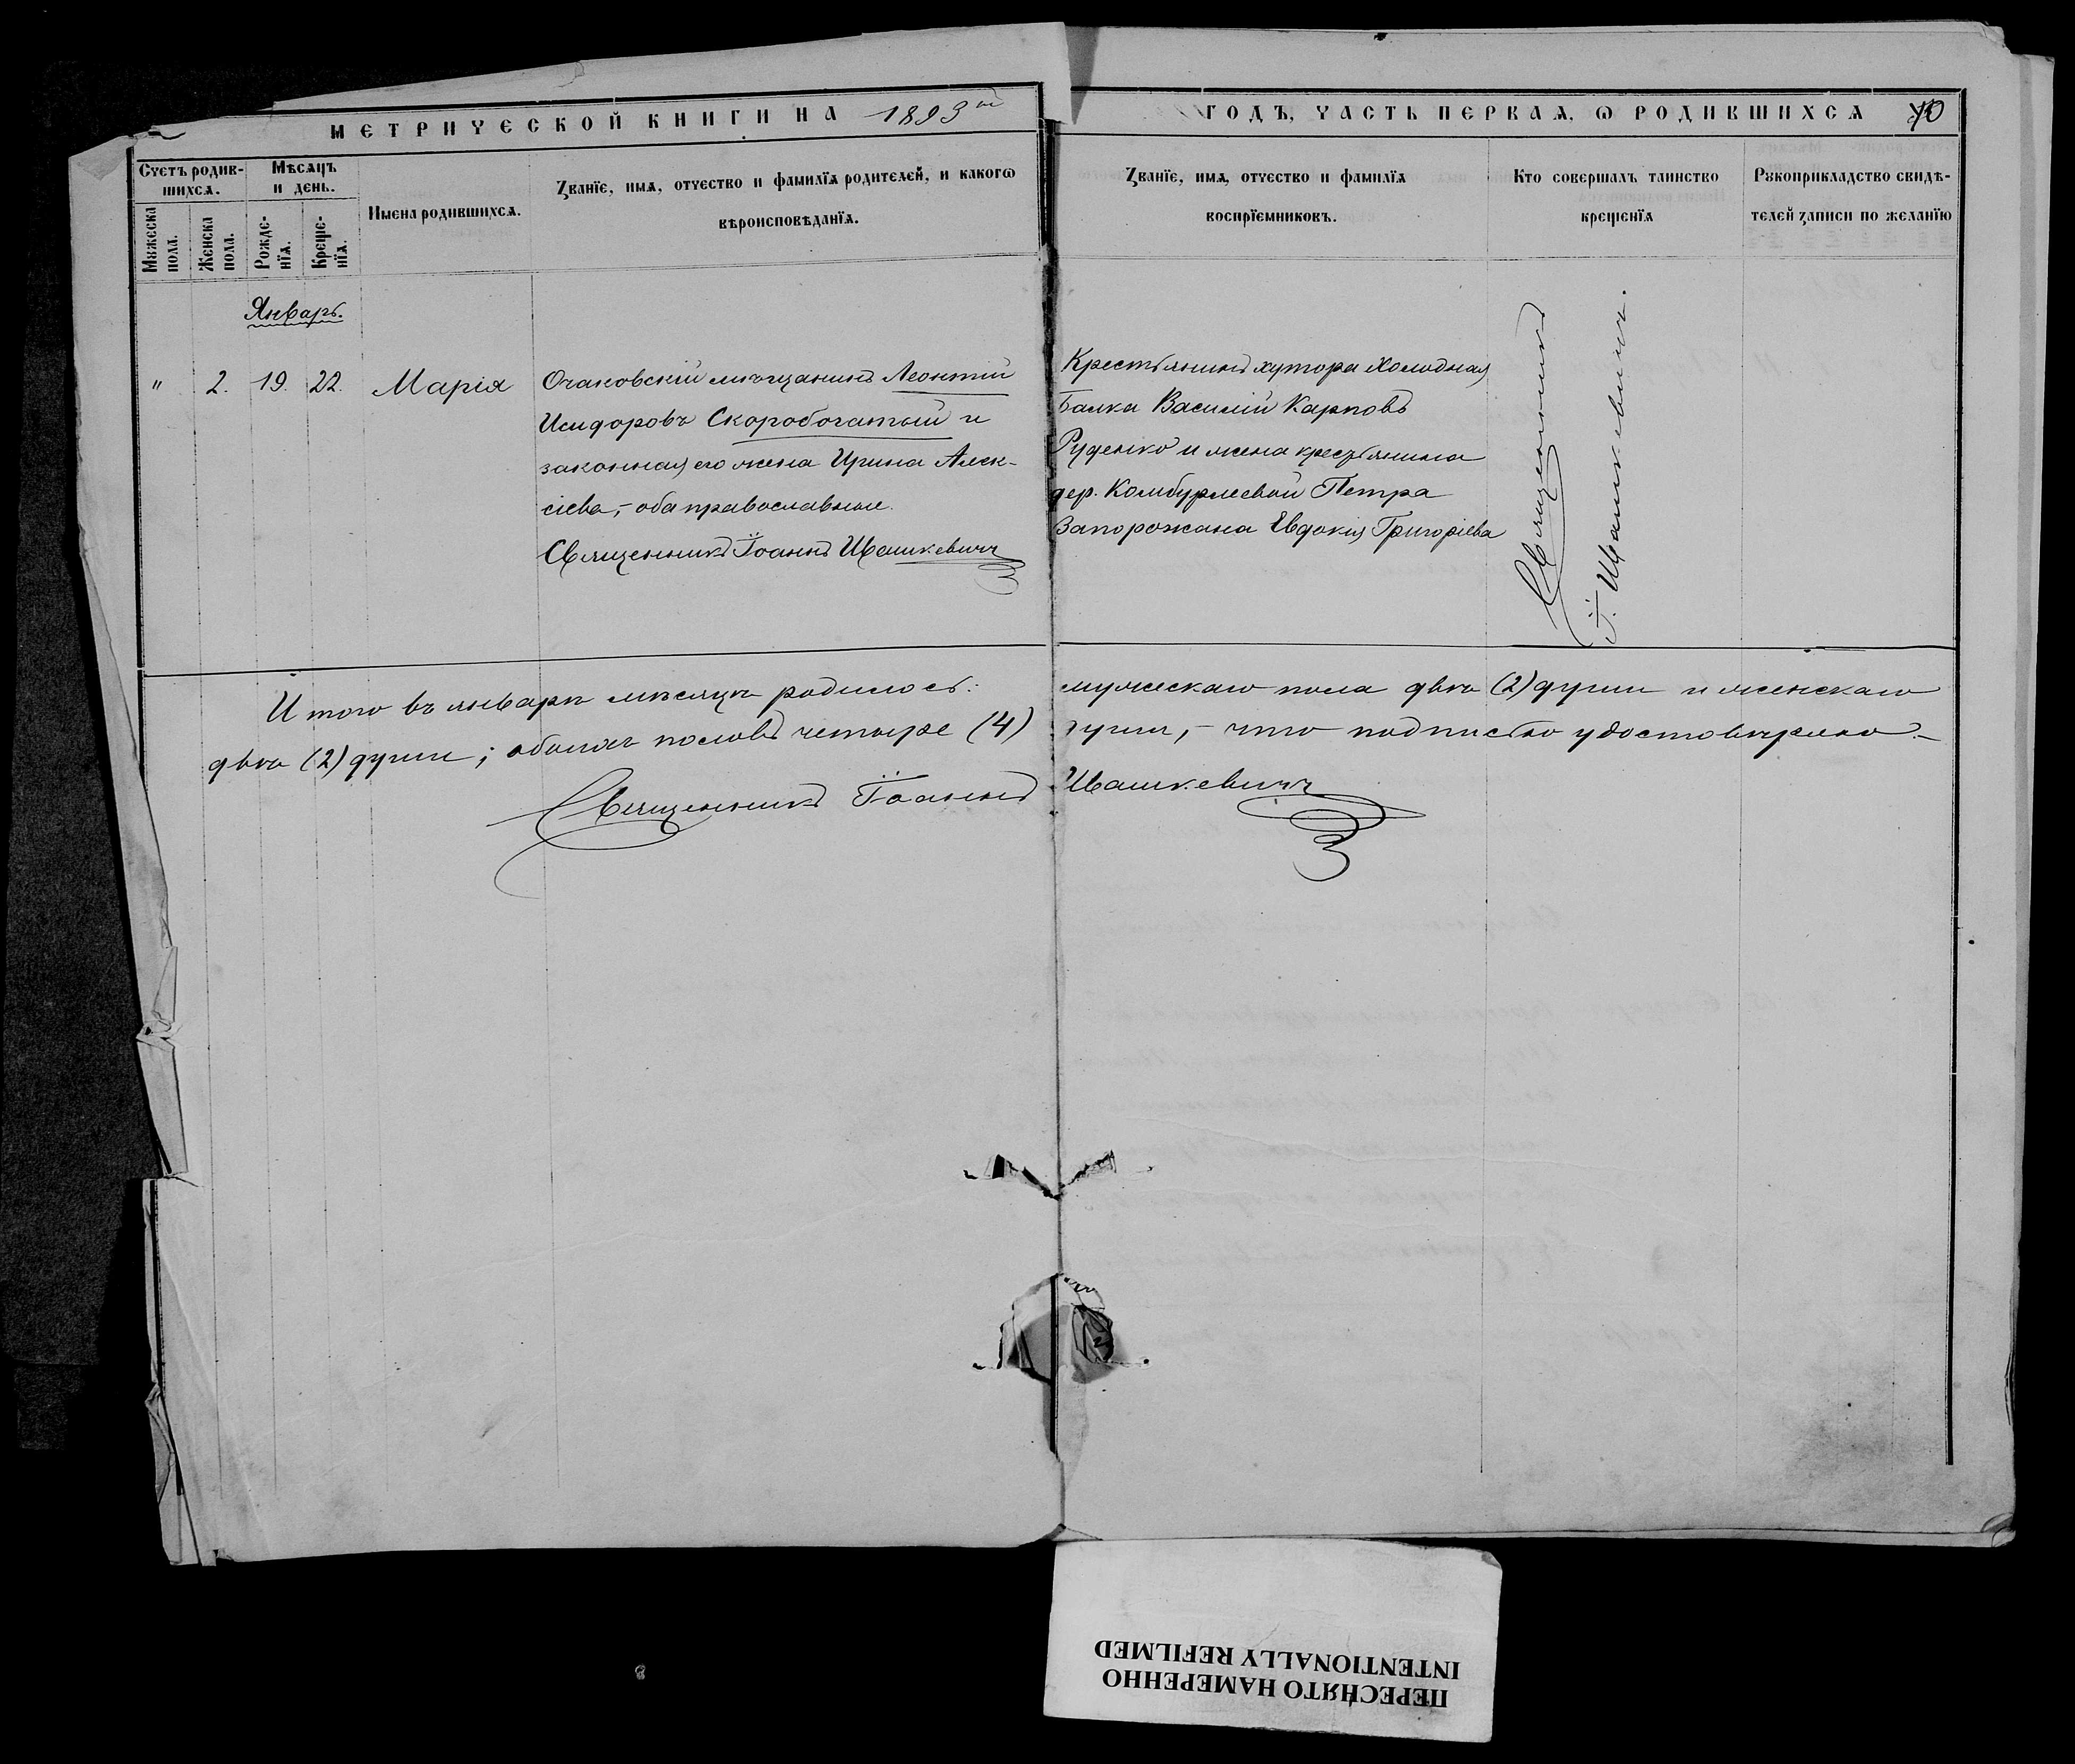 МЕТРИЧЕСКОЙ КНИГИ НА 1893й
ГОДЪ, ЧАСТЬ ПЕРВАЯ, Ѡ РОДИВШИХСЯ 40
Счетъ родив-
шихся.
Мѣсяцъ
и день.
Мужеска
пола.
Женска
пола.
Рожде-
нїя.
Креще-
нїя.
Имена родившихся.
Званїе, имя, отчество и фамилїя родителей, и какогѡ
вѣроисповѣданїя.
Званїе, имя, отчество и фамилїя
воспрїемниковъ.
Кто совершалъ таинство
крещенїя
Рукоприкладство свидѣ-
телей записи по желанїю
Январь.
" 2. 19. 22. Марія
Очаковскій мѣщанинъ Леонтій
Исидоровъ Скоробогатый и
законная его жена Ирина Алек-
сіева, – оба православные.
Священникъ Іоаннъ Ивашкевичъ
Крестьянинъ хутора Холодная
Балка Василій Карповъ
Руденко и жена крестьянина
дер. Комбурлеевой Петра
Запорожана Евдокія Григоріева
Священникъ
І. Ивашкевичъ.
Итого въ январѣ мѣсяцѣ родилось: мужескаго пола двѣ (2) души и женскаго
двѣ (2) души; обоихъ половъ четыре (4) души, – что подписью удостовѣряю. –
Священникъ Іоаннъ Ивашкевичъ
ПЕРЕСНЯТО НАМЕРЕННО
INTENTIONALLY REFILMED